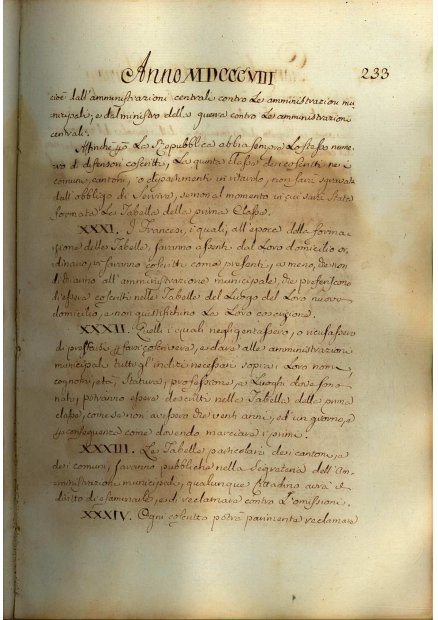 Anno MDCCCVIII 233
cioè dall'amministrazioni centrali contro Le amministrazioni mu
nicipali; e dal ministro della guerra contro Le amministrazioni
centrali.
Affinchè La Repubblica abbia sempre Lo stesso nume
ro di difensori coscritti, La quinta classe de coscritti ne i
comuni, cantoni, o dipartimenti in ritardo, non sarà
dall'obbligo di Servire, se non al momento in cui sarà stata
formata La Tabella della prima Classe.
XXXI. I Francesi, i quali, all'epoca della forma
zione delle Tabelle, saranno assenti dal Loro domicilio or
dinario, vi saranno coscritti come presenti, a meno, che non
all'amministrazione municipale, che preferiscono
d'essere coscritti nelle Tabelle del Luogo del Loro nuovo
domicilio, e non giustifichino La Loro coscrizione.
XXXII. Quelli i quali negligentassero, o ricusassero
di presentarsi coscrivere, e dare alle amministrazioni
municipali tutti gl'indizi necessari sopra i Loro nomi,
cognomi, età, statura, professione, e Luoghi dove sono
nati, potranno essere descritti nelle Tabelle della prima
classe, come se non avessero che venti anni, ed un giorno, e
conseguenza come dovendo marciare i primi.
XXXIII. Le Tabelle particolari dei cantoni, e
dei comuni, saranno pubbliche nella Segreteria dell'Am
ministrazion municipale, qualunque Cittadino avrà il
diritto di esaminarle, e di reclamare contro L'omissioni.
XXXIV. Ogni coscritto potrà parimenti reclamare